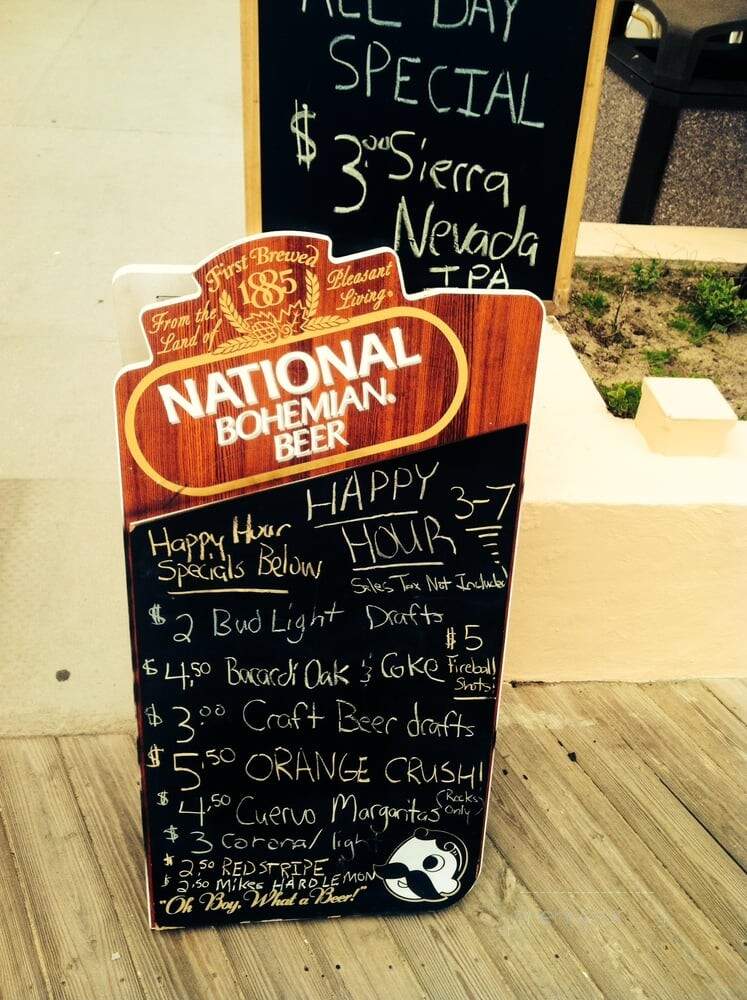 ALL DAY
SPECIAL
$3.00 Sierra
Nevada
IPA
First Brewed
1885
From the
Land of
Pleasant
Living.
NATIONAL
BOHEMIAN®
BEER
HAPPY
HOUR
3-7
Happy Hour
Specials Below
Sales Tax Not Included
$2 Bud Light Drafts
$5
Fireball
Shots!
$4.50 Bacardi Oak & Coke
$3.00 Craft Beer drafts
$5.50 ORANGE CRUSH!
$4.50 Cuervo Margaritas (Rocks
Only)
$3 corona/light
$2.50 RED STRIPE
$2.50 Mikes HARD LEMON
"Oh Boy, What a Beer!"